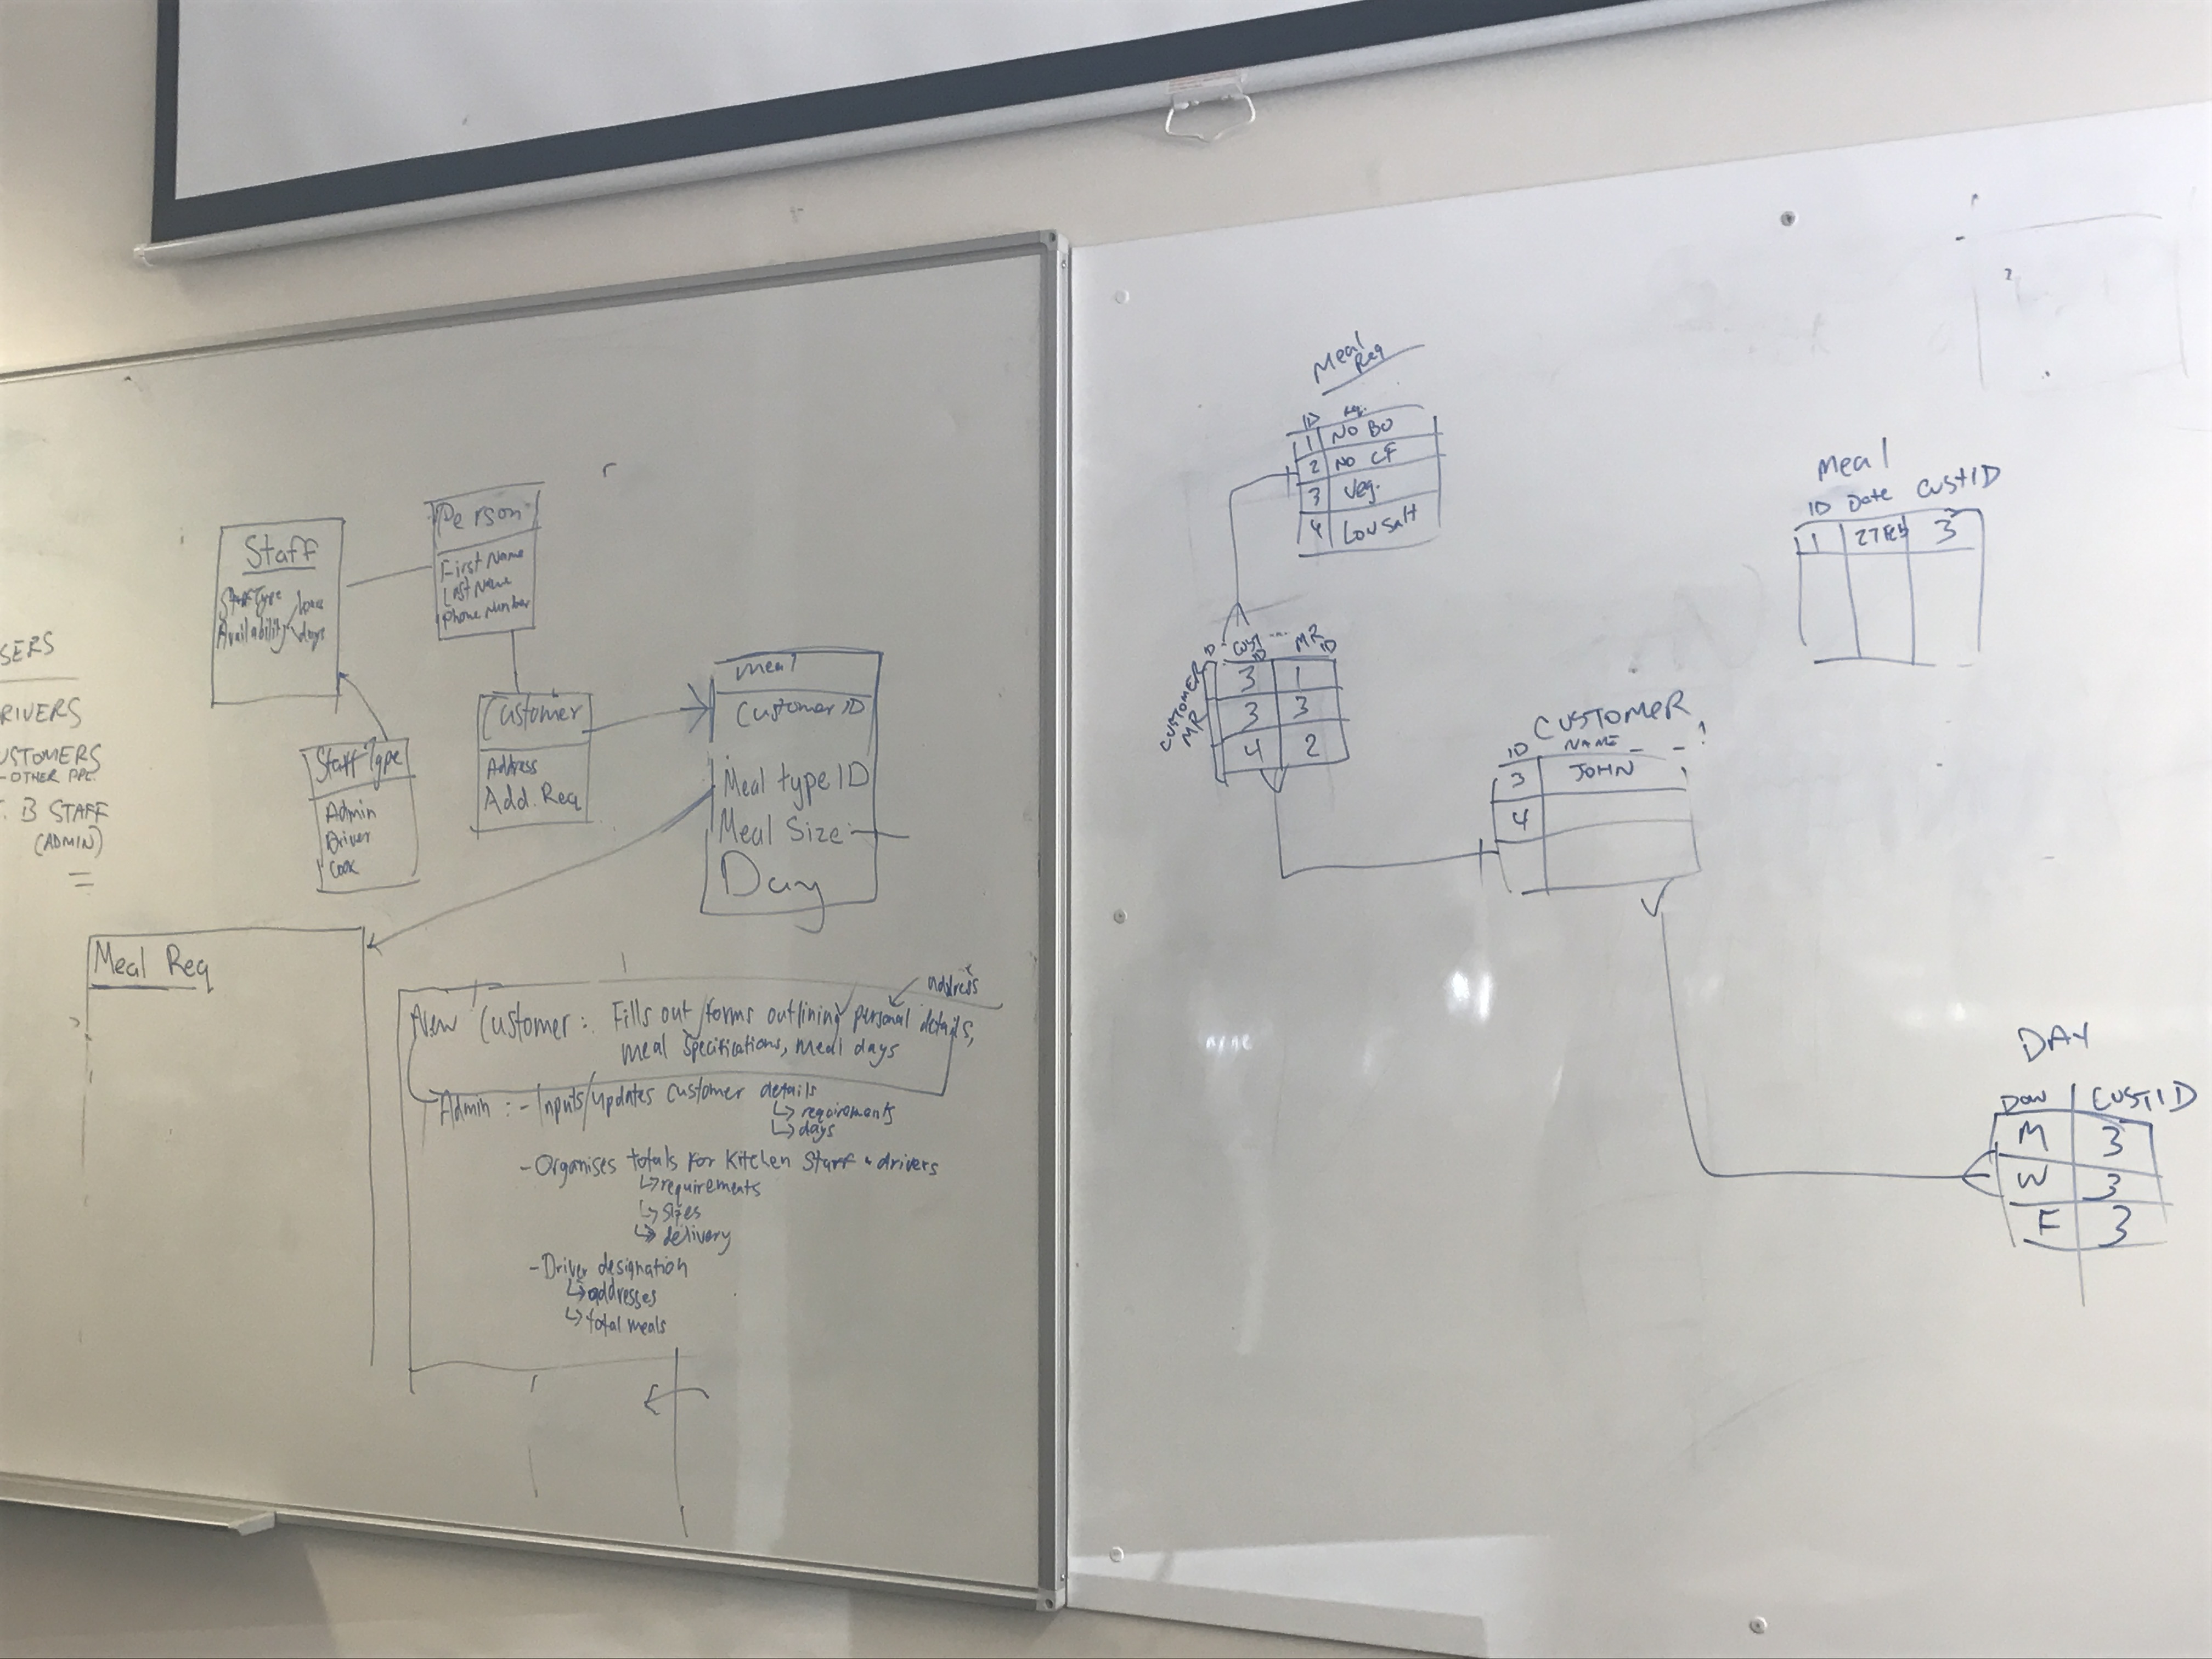 SERS
RIVERS
USTOMERS
-OTHER PPL
. B STAFF
(ADMIN)
Staff
Staff Type
Availability
days
Person
First Name
Last Name
Phone Number
Staff Type
Admin
Driver
Cook
Customer
Address
Add. Req
Meal
Customer ID
Meal type ID
Meal Size
Day
Meal Req
address
New Customer : Fills out forms outlining personal details,
meal specifications, meal days
Admin : - Inputs/updates customer details
↳ requirements
↳ days
- Organises totals for Kitchen Staff & drivers
↳ requirements
↳ sizes
↳ delivery
- Driver designation
↳ addresses
↳ total meals
Meal
Req
ID Req.
1 NO BO
2 NO CF
3 Veg.
4 Low Salt
CUSTOMER
MR
ID Cust ID MR ID
3 1
3 3
4 2
CUSTOMER
ID NAME
3 JOHN
4
Meal
ID Date CustID
1 3
DAY
DOW CUSTID
M 3
W 3
F 3